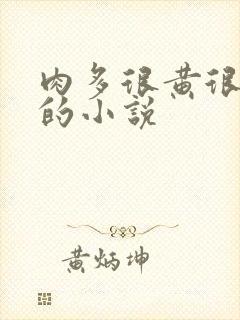 肉多很黄很
的小说
黄炳坤